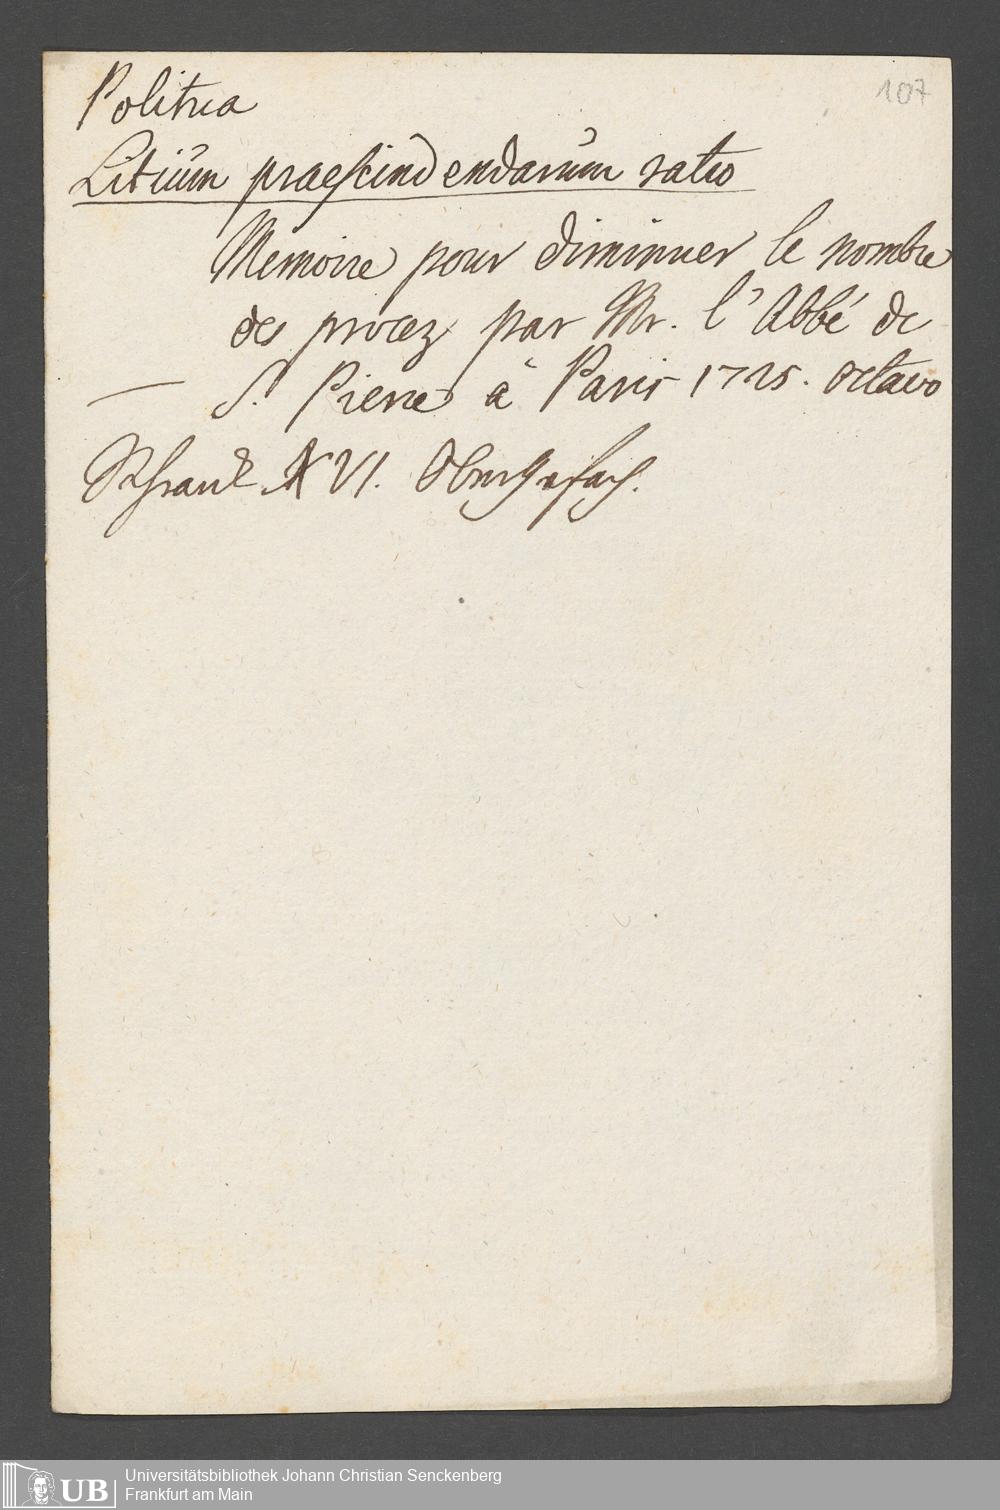 107
Politica
Litium praescindendarum ratio
Memoire pour diminuer le nombre
des procez par Mr. l'Abbé de
— S. Pierre à Paris 1725. octavo
Schrank XVI.
Universitätsbibliothek Johann Christian Senckenberg
UB Frankfurt am Main